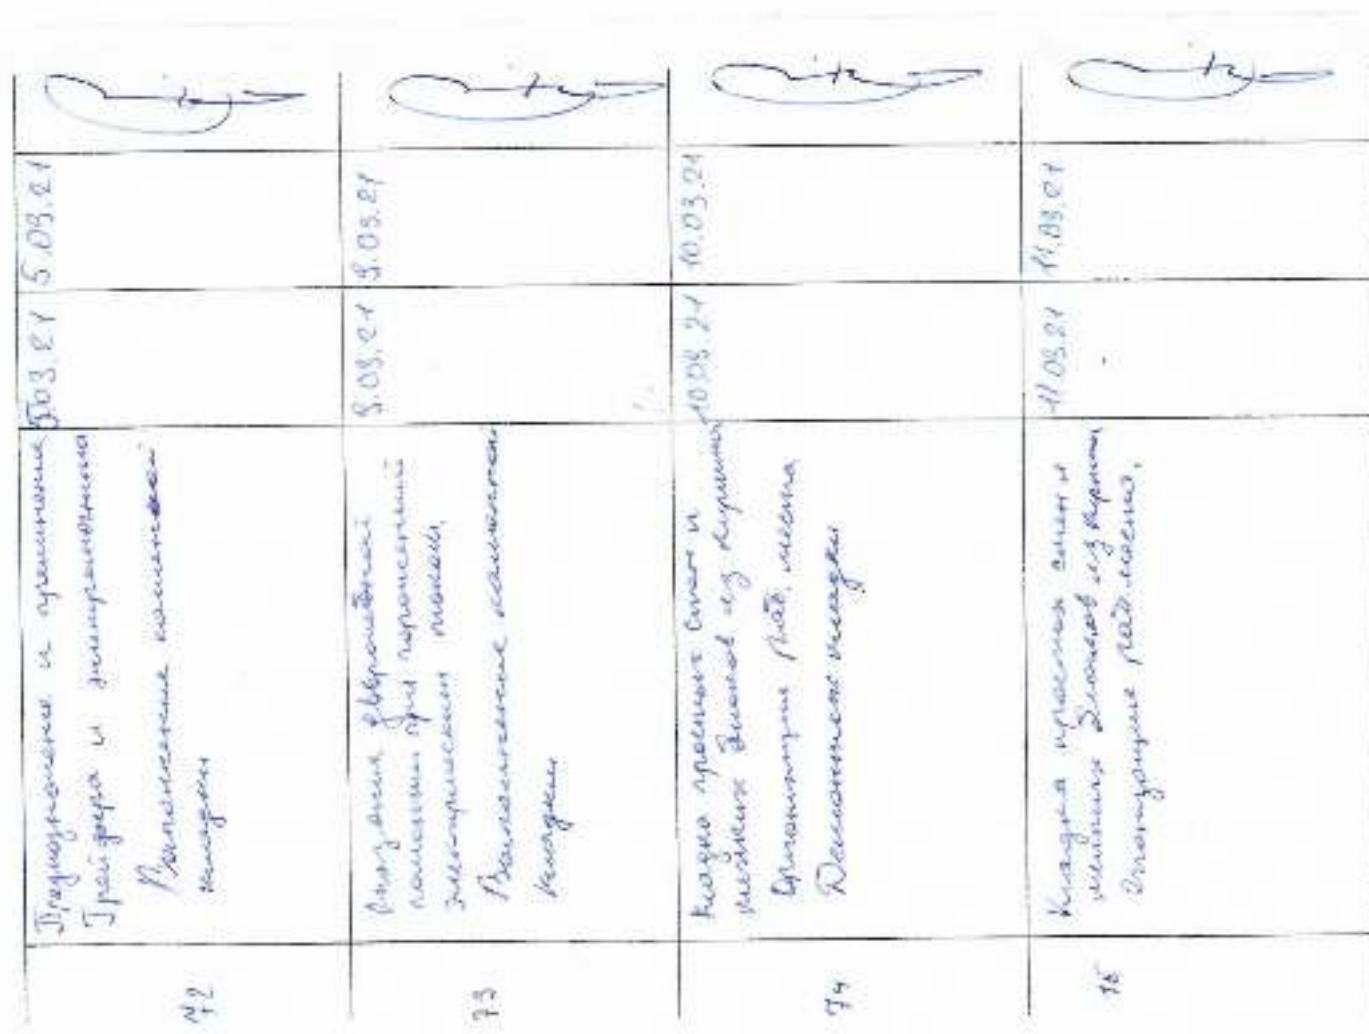 72
Предназначение и применение
Грейдера и
Выполнение каменной
кладки
5.03.21
5.03.21
73
Оказания доврачебной
помощи при поражении
электрическим током,
Выполнение каменной
кладки
9.03.21
9.03.21
74
Кладка простых стен и
мелких блоков из кирпича
Организация раб. места
10.03.21
10.03.21
75
Кладка простых стен и
мелких блоков из кирпича
Организация раб. места,
11.03.21
11.03.21